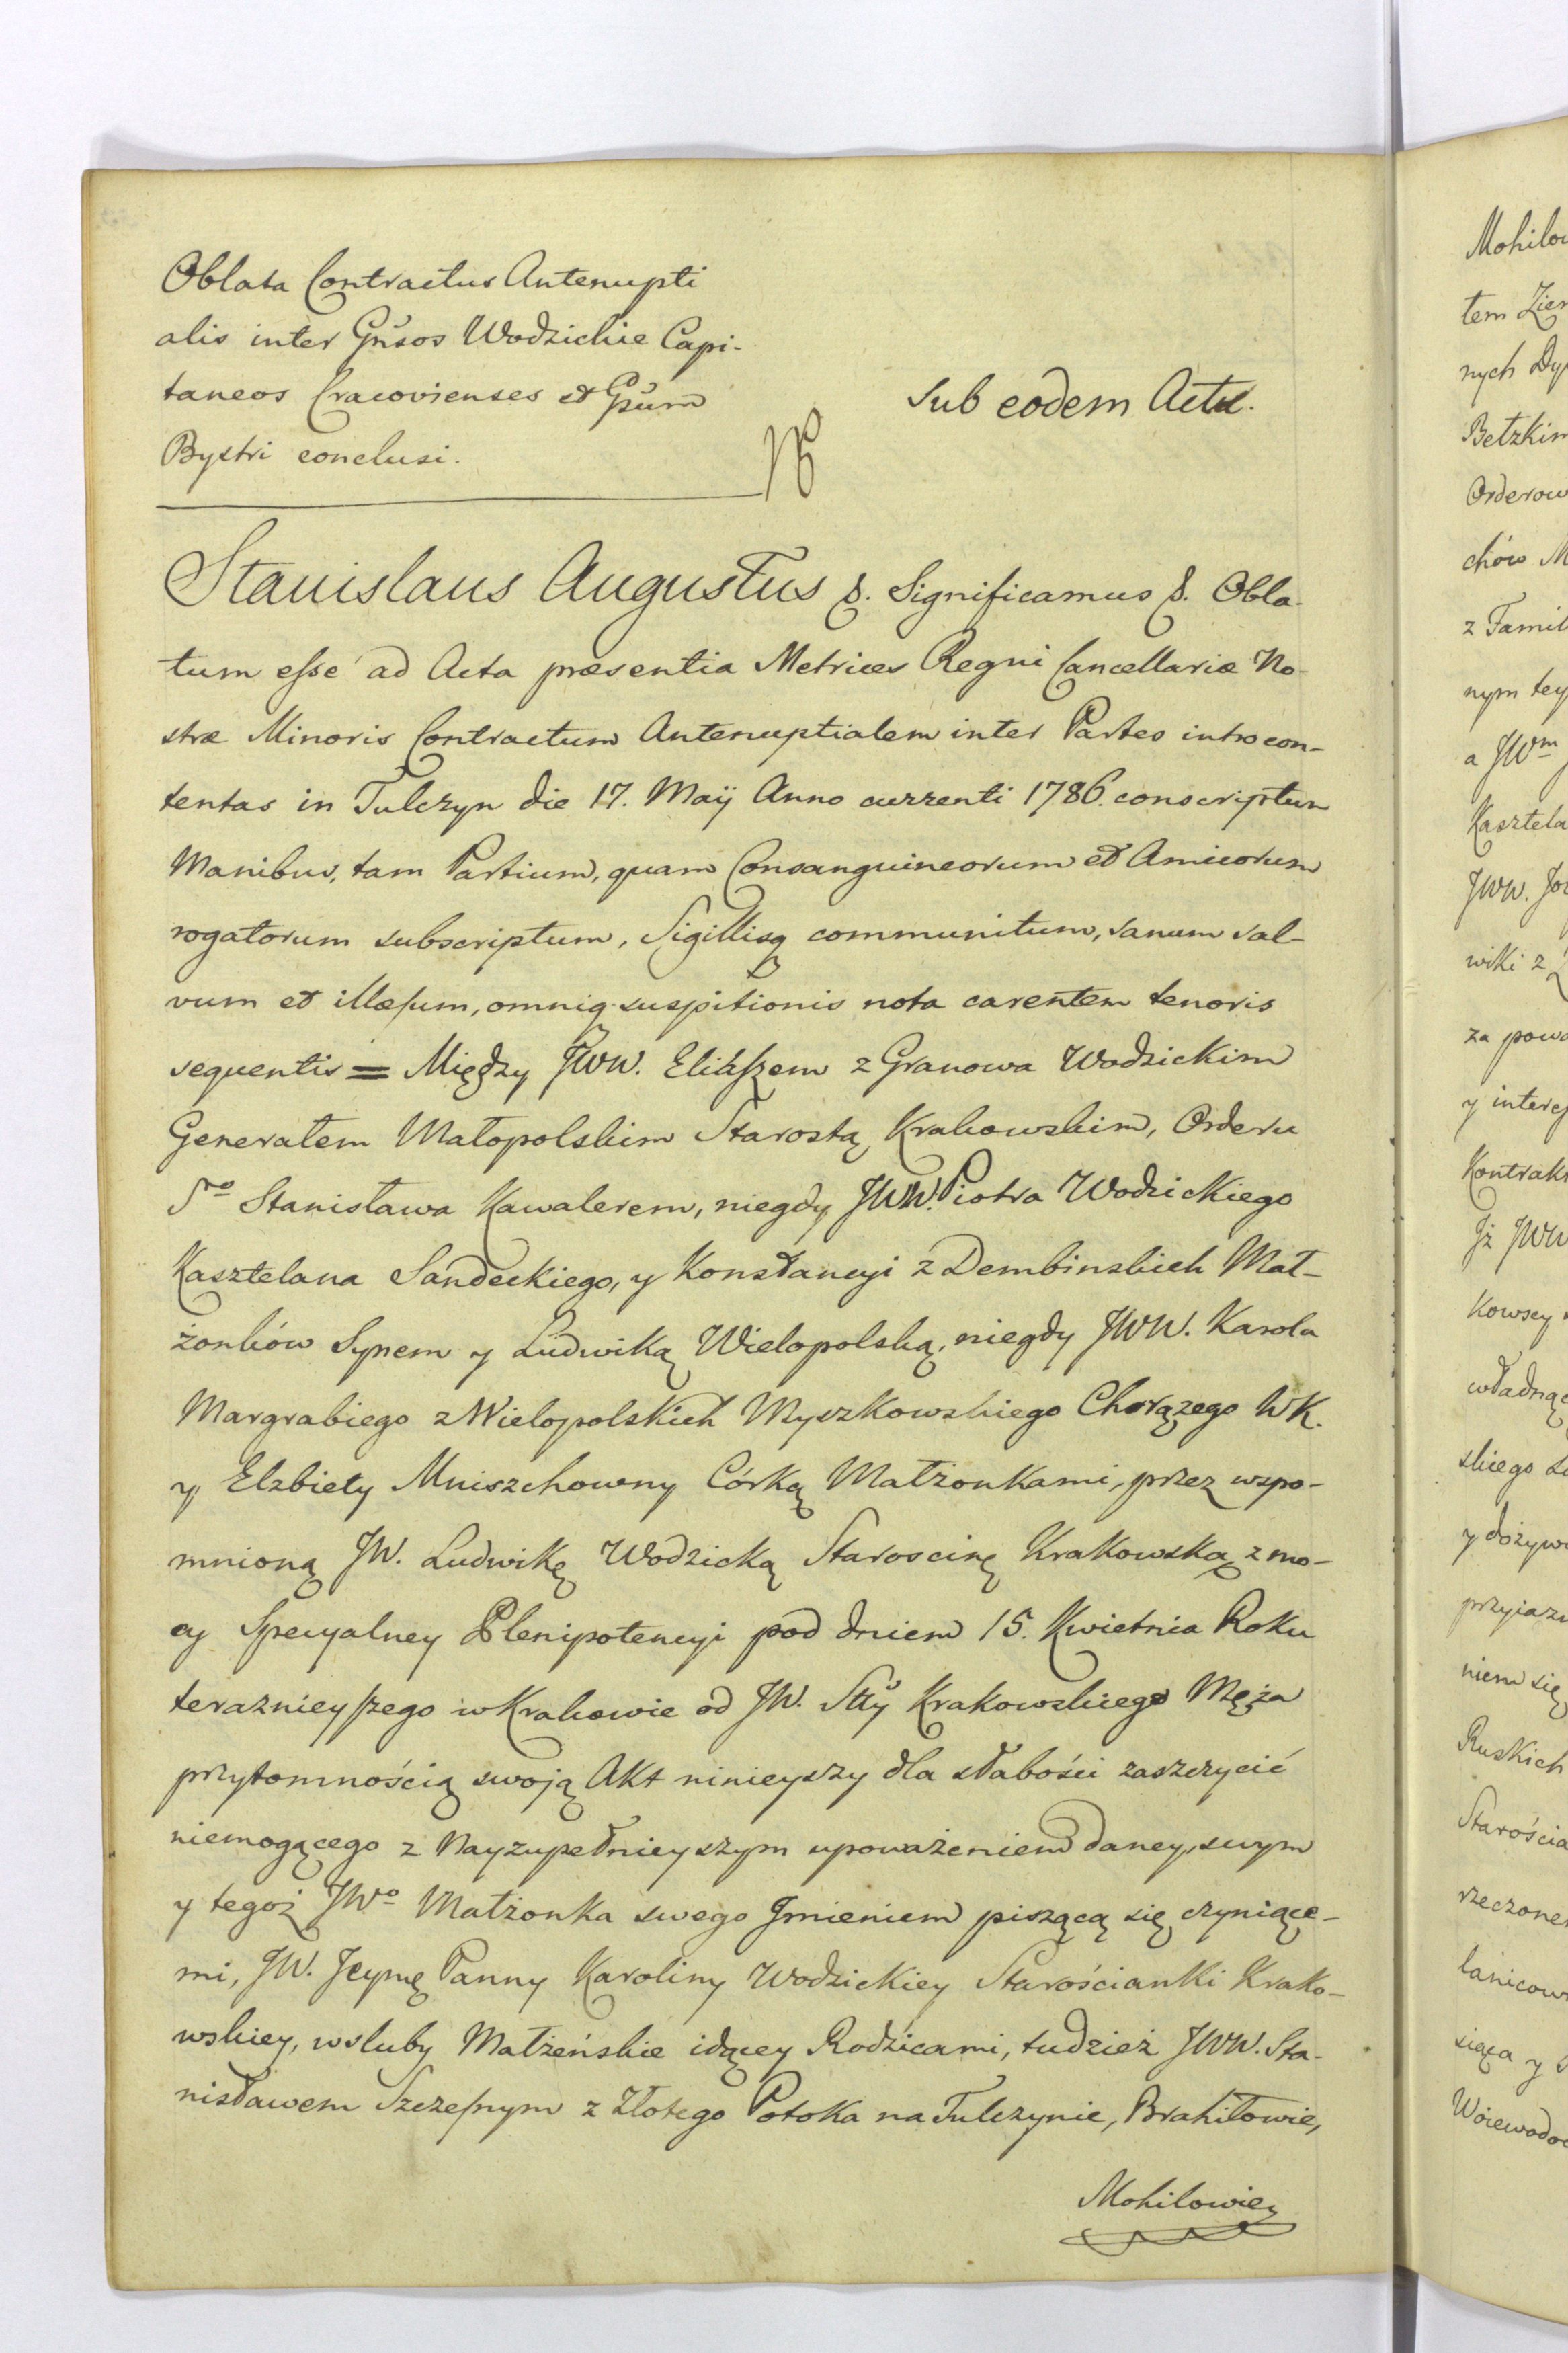 Oblata Contractus Antenupti
alis inter Gñsos Wodzickie Capi-
taneos Cracovienses et Gsum
Bystri conclusi.
Sub eodem Actu.
Stanislaus Augustus &. Significamus &. Obla-
tum esse ad Acta præsentia Metrices Regni Cancellariæ No-
stræ Minoris Contractum Antenuptialem inter Partes introcon-
tentas in Tulczyn die 17. Maÿ Anno currenti 1786. conscriptum
Manibus, tam Partium, quam Consanguineorum et Amicorum
rogatorum subscriptum, Sigillisq communitum, sanum sal-
vum et illæsum, omniq suspitionis nota carentem tenoris
sequentis = Między JWW. Eliaszem z Granowa Wodzickim
Generałem Małopolskim Starostą Krakowskim, Orderu
Sgo Stanisława Kawalerem, niegdy JWW. Piotra Wodzickiego
Kasztelana Sandeckiego, y Konstancyi z Dembinskich Mał-
żonków Synem y Ludwiką Wielopolską, niegdy JWW. Karola
Margrabiego z Wielopolskich Myszkowskiego Chorązego WK.
y Elzbiety Mniszchowny Córką Małżonkami, przez wspo-
mnioną JW. Ludwikę Wodzicką Starościnę Krakowską z mo-
cy Specyalney Plenipotencyi pod dniem 15. Kwietnia Roku
teraznieyszego w Krakowie od JW. Stty Krakowskiego Męża
przytomnością swoją Akt ninieyszy dla słabości zaszczycić
niemogącego z Nayzupełnieyszym upoważeniem daney, swym
y tegoż JWo Małżonka swego Jmieniem piszącą się czyniące-
mi, JW. Jeymę Panny Karoliny Wodzickiey Starościanki Krako-
wskiey, w sluby Małżeńskie idącey Rodzicami, tudzież JWW. Sta-
nisławem Szczesnym z Złotego Potoka na Tulczynie, Brahiłowie,
Mohilowie
Mohilow
tem
nych
Betzkim
Orderow
chów M
z Famil
nym tey
a JWm
Kasztela
JWW.
wiki z
za powa
y interes
Kontrakt
Jż JWW
kowscy
władną
skiego
y dożyw
przyiazn
niem się
Ruskich
Starościa
rzeczone
łanicow
siąca y
Woiewodo